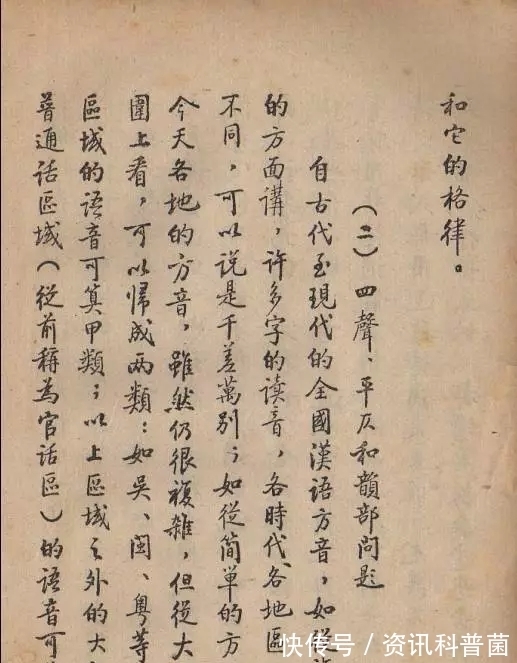 和它的格律。
(二)四聲、平仄和韻部問題
自古代至現代的全國漢語方音,如從
的方面講,許多字的讀音,各時代各地區
不同,可以說是千差萬別;如從簡單的方
今天各地的方音,雖然仍很複雜,但從大
圍上看,可以歸成兩類:如吳、閩、粵等
區域的語音可算甲類;以上區域之外的大
普通話區域(從前稱為官話區)的語音可
快传号 / 资讯科普菌